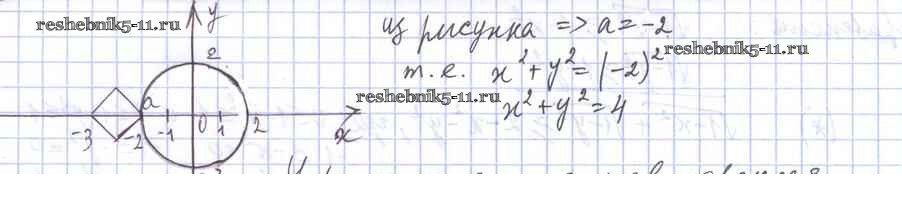 y
reshebnik5-11.ru
из рисунка => a = -2
2
reshebnik5-11.ru
т.е. x² + y² = (-2)²
a
reshebnik5-11.ru
x² + y² = 4
-3 -2 -1 0 1 2 x